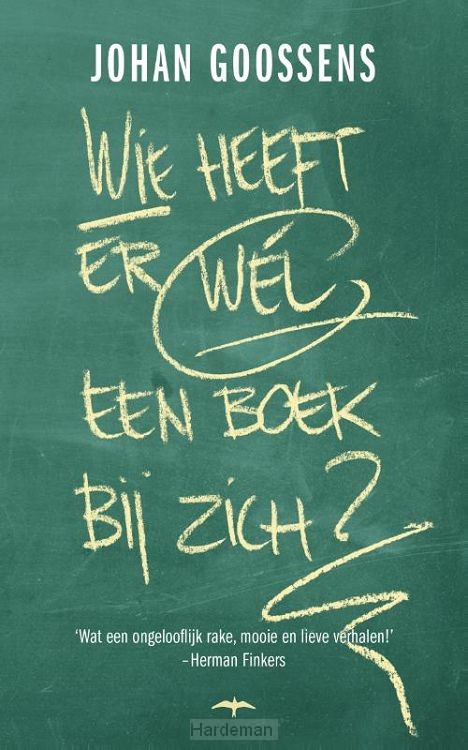 JOHAN GOOSSENS
WIE HEEFT
ER WÉL
EEN BOEK
BIJ ZICH?
‘Wat een ongelooflijk rake, mooie en lieve verhalen!’
–Herman Finkers
Hardeman